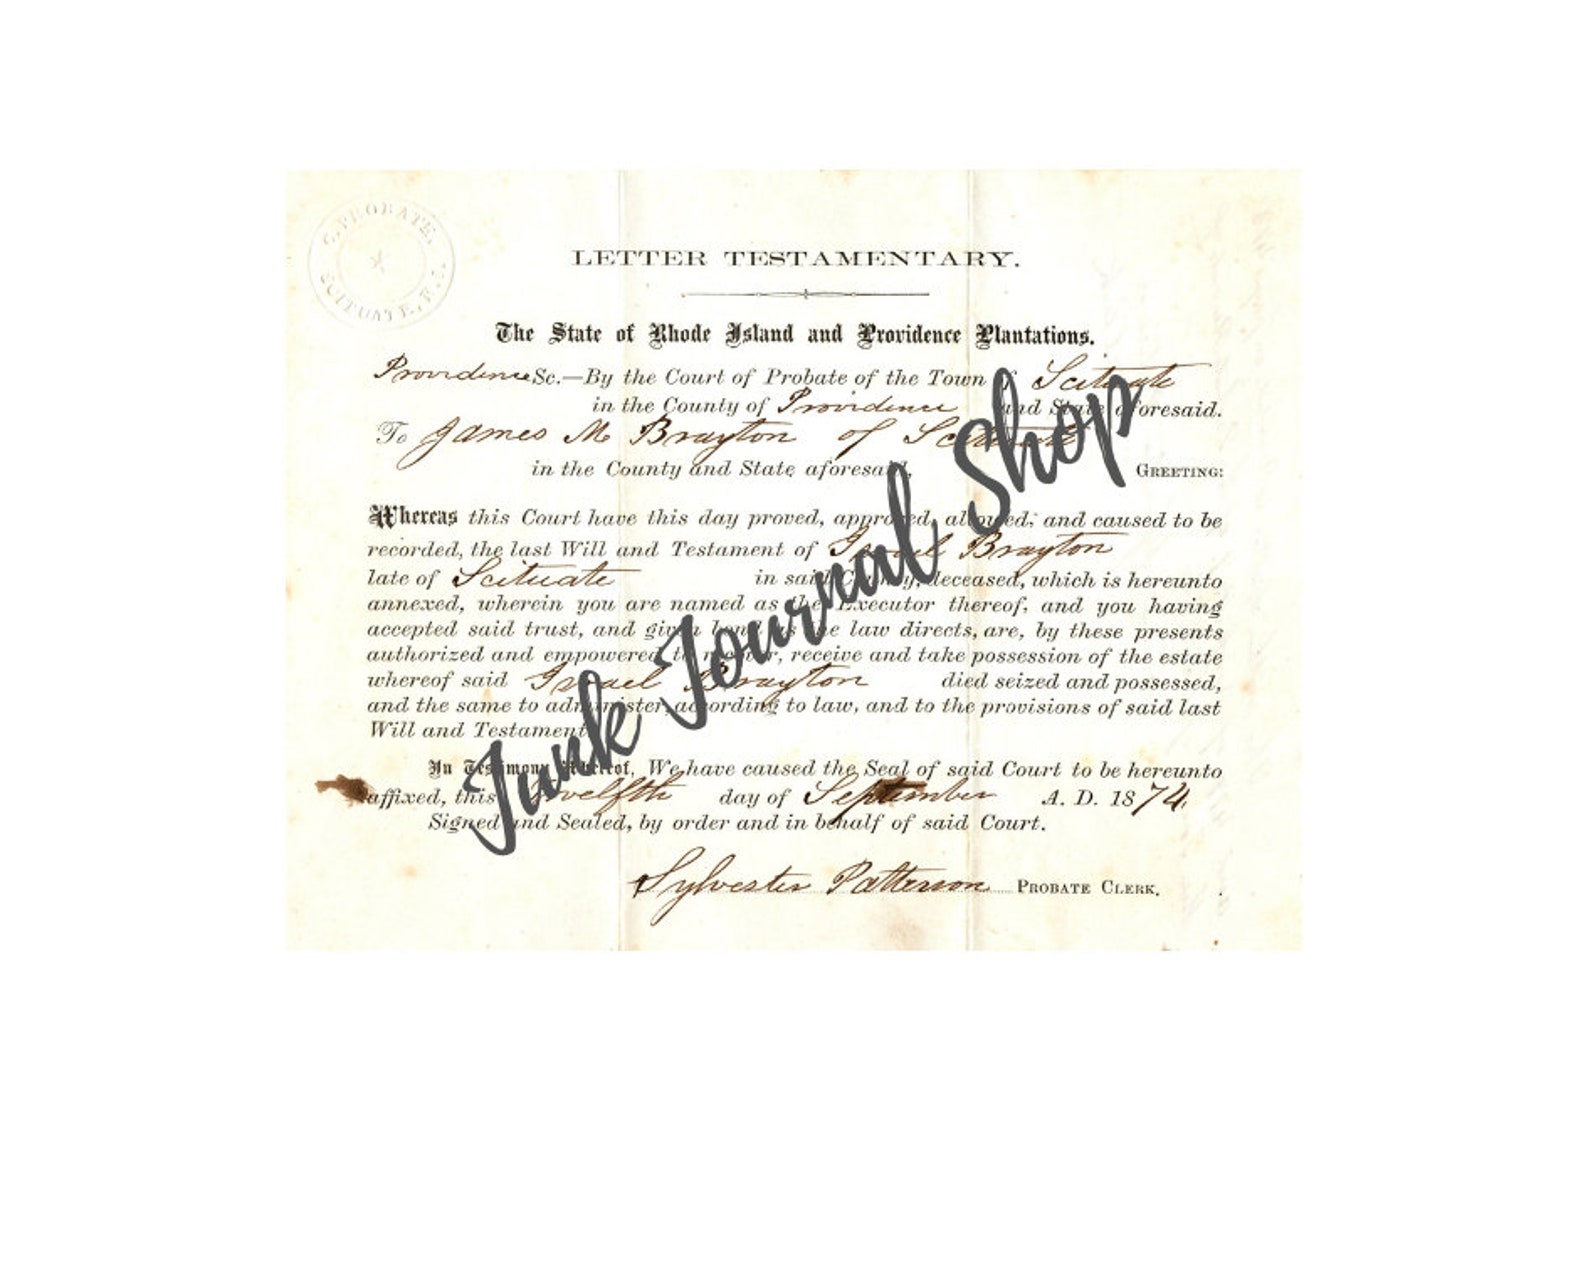 C. PROBATE.
SCITUATE, R.I.
LETTER TESTAMENTARY.
The State of Rhode Island and Providence Plantations.
Providence Sc.—By the Court of Probate of the Town of Scituate
in the County of Providence and State aforesaid.
To James M Brayton of Scituate
in the County and State aforesaid, GREETING:
Whereas this Court have this day proved, approved, allowed, and caused to be
recorded, the last Will and Testament of Israel Brayton
late of Scituate in said County, deceased, which is hereunto
annexed, wherein you are named as the Executor thereof, and you having
accepted said trust, and given bond as the law directs, are, by these presents
authorized and empowered to recover, receive and take possession of the estate
whereof said Israel Brayton died seized and possessed,
and the same to administer, according to law, and to the provisions of said last
Will and Testament.
In Testimony Whereof, We have caused the Seal of said Court to be hereunto
affixed, this Twelfth day of September A. D. 1874.
Signed and Sealed, by order and in behalf of said Court.
Sylvester Patterson PROBATE CLERK.
Junk Journal Shop